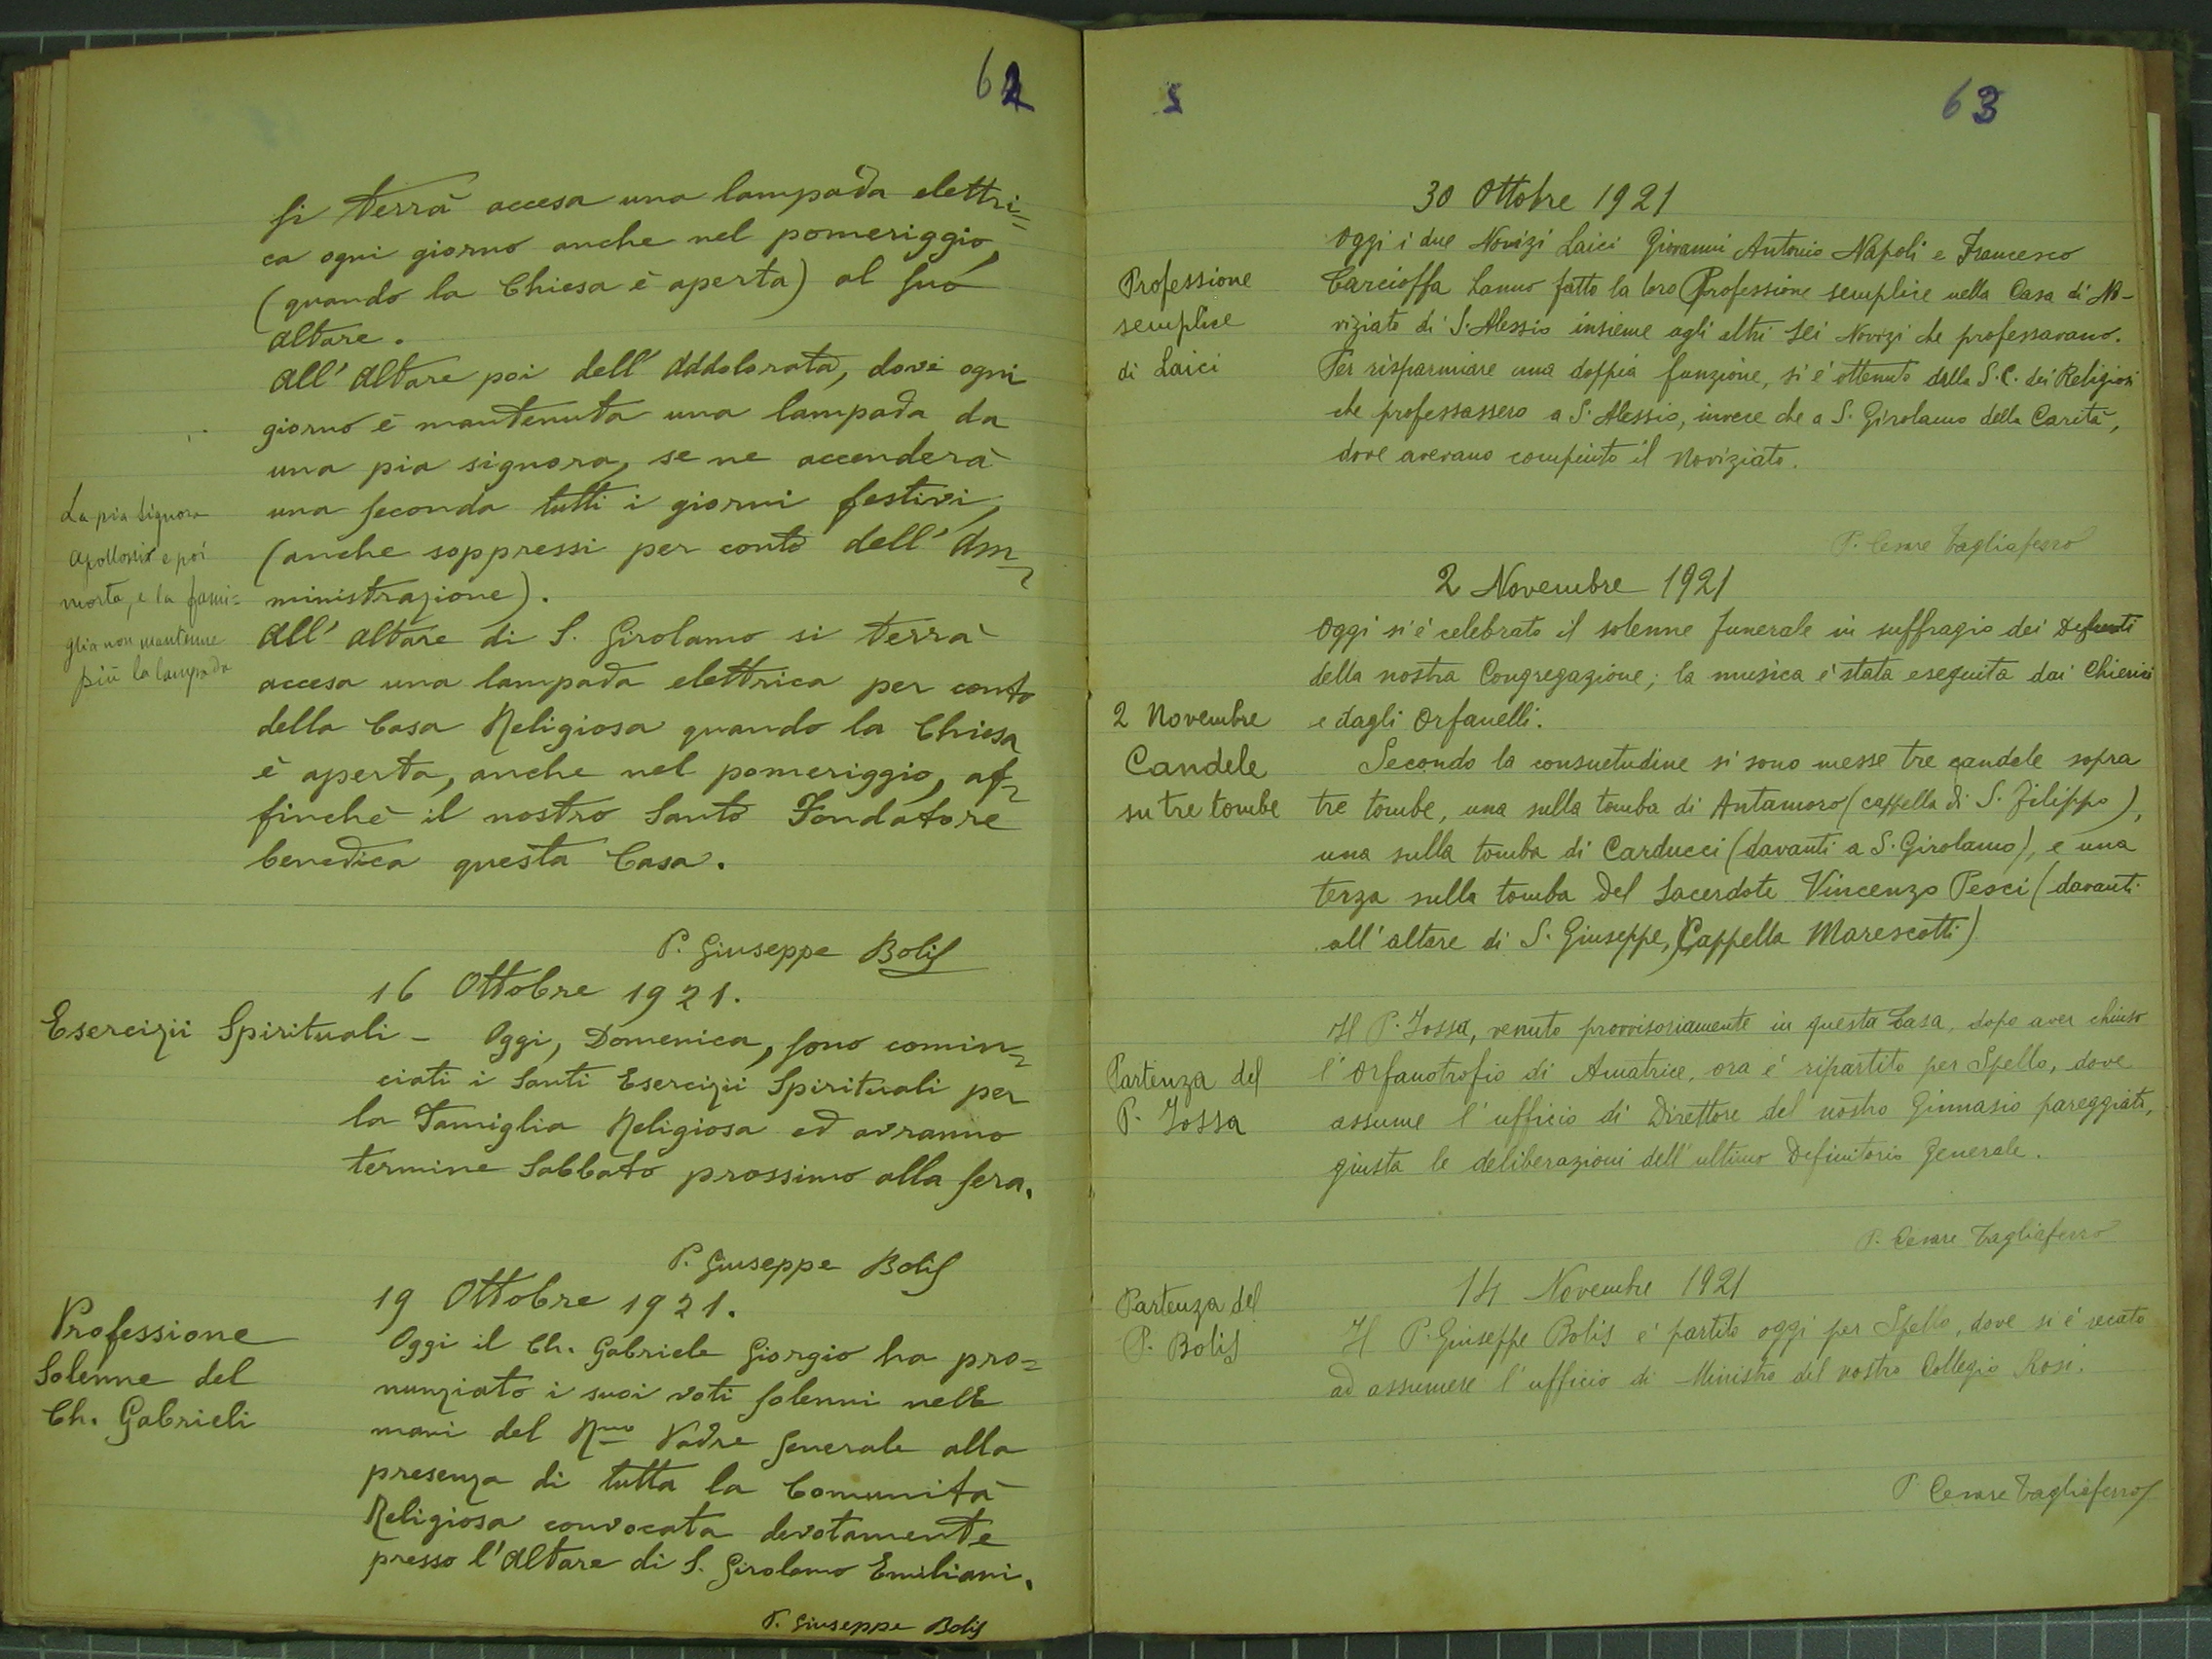 62
si terrà accesa una lampada elettri=
ca ogni giorno anche nel pomeriggio,
(quando la Chiesa è aperta) al suo
altare.
All' Altare poi dell' Addolorata, dove ogni
giorno è mantenuta una lampada da
una pia signora, se ne accenderà
una seconda tutti i giorni festivi,
(anche soppressi per conto dell' Am=
ministrazione).
La pia signora
Apollonia e poi
morta, e la fami=
glia non mantenne
più la lampada
All' altare di S. Girolamo si terrà
accesa una lampada elettrica per conto
della Casa Religiosa quando la Chiesa
è aperta, anche nel pomeriggio, af=
finchè il nostro Santo Fondatore
benedica questa Casa.
P. Giuseppe Bolis
16 Ottobre 1921.
Esercizii Spirituali - Oggi, Domenica, sono comin=
ciati i Santi Esercizii Spirituali per
la Famiglia Religiosa ed avranno
termine Sabbato prossimo alla sera.
P. Giuseppe Bolis
19 Ottobre 1921.
Professione
Solenne del
Ch. Gabrieli
Oggi il Ch. Gabriele Giorgio ha pro=
nunziato i suoi voti solenni nelle
mani del Rmo Padre Generale alla
presenza di tutta la Comunità
Religiosa convocata devotamente
presso l'Altare di S. Girolamo Emiliani.
P. Giuseppe Bolis
63
30 Ottobre 1921
Professione
semplice
di Laici
Oggi i due Novizi Laici Giovanni Antonio Napoli e Francesco
Carcioffa hanno fatto la loro Professione semplice nella Casa di No-
viziato di S. Alessio insieme agli altri sei Novizi che professavano.
Per risparmiare una doppia funzione, si è ottenuto dalla S.C. dei Religiosi
che professassero a S. Alessio, invece che a S. Girolamo della Carità,
dove avevano compiuto il Noviziato.
P. Cesare Tagliaferro
2 Novembre 1921
Oggi si è celebrato il solenne funerale in suffragio dei Defunti
della nostra Congregazione; la musica è stata eseguita dai Chierici
e dagli Orfanelli.
2 Novembre
Candele
su tre tombe
Secondo la consuetudine si sono messe tre candele sopra
tre tombe, una sulla tomba di Antamoro (cappella di S. Filippo),
una sulla tomba di Carducci (davanti a S. Girolamo), e una
terza sulla tomba del Sacerdote Vincenzo Pesci (davanti
all'altare di S. Giuseppe,) Cappella Marescotti)
Partenza del
P. Jossa
Il P. Jossa, venuto provvisoriamente in questa Casa, dopo aver chiuso
l'Orfanotrofio di Amatrice, ora è ripartito per Spello, dove
assume l'ufficio di Direttore del nostro Ginnasio pareggiato,
giusta le deliberazioni dell'ultimo Definitorio Generale.
P. Cesare Tagliaferro
14 Novembre 1921
Partenza del
P. Bolis
Il P. Giuseppe Bolis è partito oggi per Spello, dove si è recato
ad assumere l'ufficio di Ministro del nostro Collegio Rosi.
P. Cesare Tagliaferro